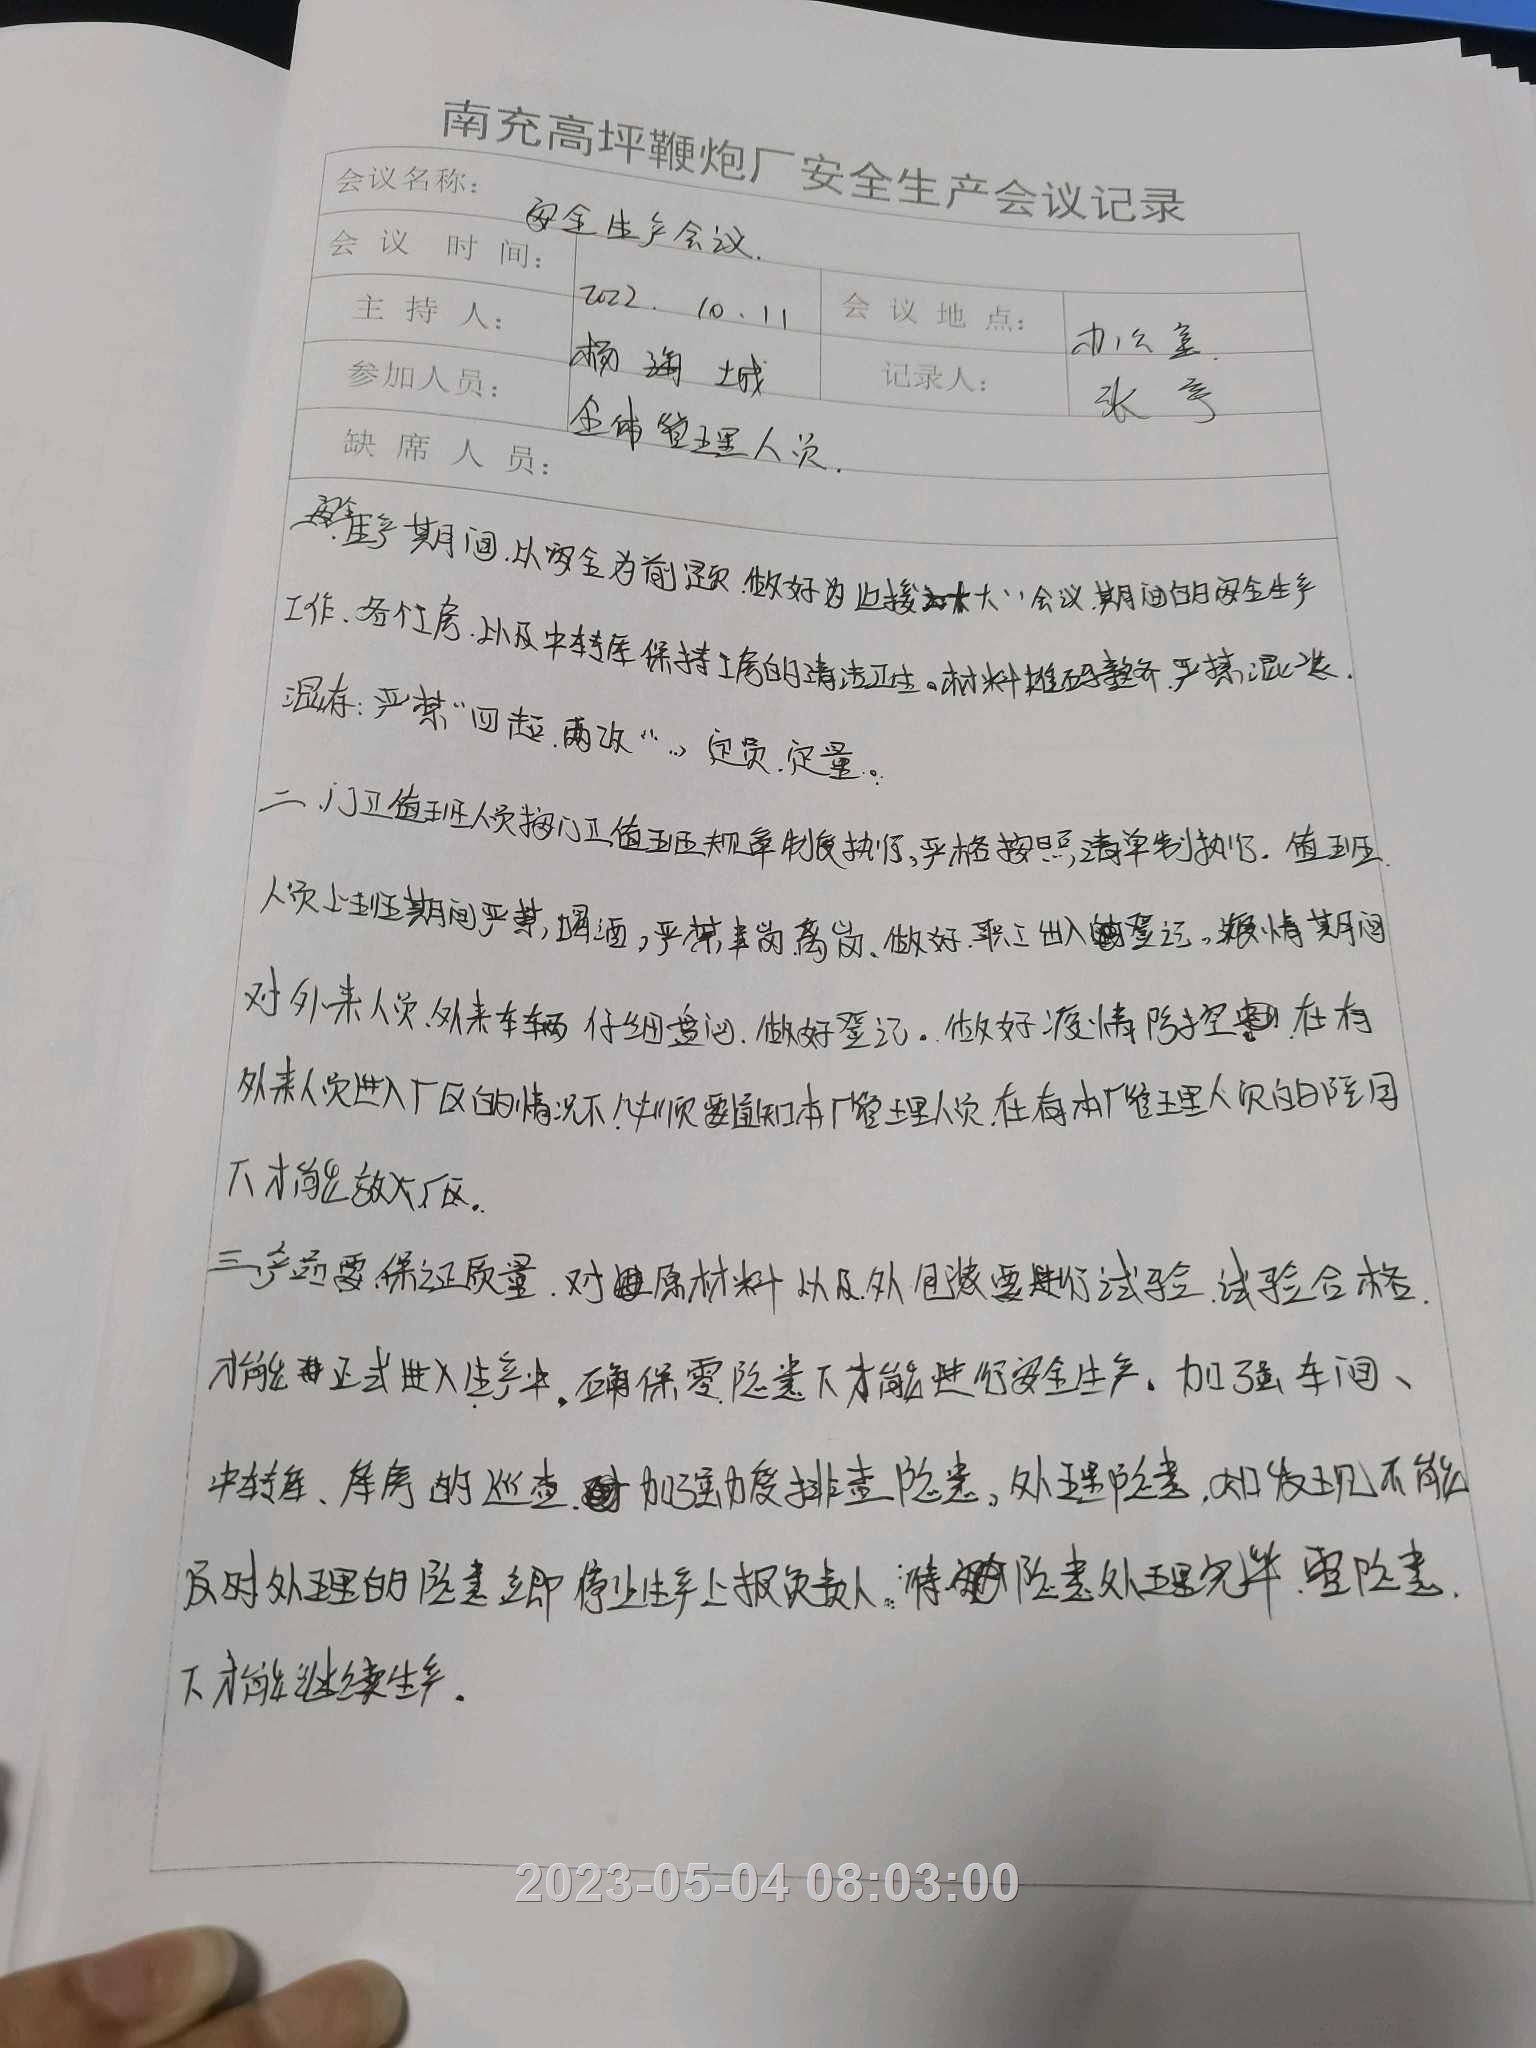 南充高坪鞭炮厂安全生产会议记录
会议名称: 安全生产会议.
会议时间: 2022. 10. 11 会议地点: 办公室.
主持人: 杨海城 记录人: 张亨
参加人员: 全体管理人员.
缺席人员:
安全生产期间.以安全为前提.做好为迎接大"会议.期间的安全生产
工作、各个工房.以及中转库保持工房的清洁卫生。材料堆码整齐.严禁混装.
混存:严禁"四超.两改"..、定员.定量。
二、门卫值班人员按门卫值班规章制度执行,严格按照,清单制执行.值班
人员上班期间严禁,烟酒,严禁串岗离岗、做好.职工出入登记,疫情期间
对外来人员.外来车辆仔细盘问.做好登记。做好疫情防控.在有
外来人员进入厂区的情况下必须要通知本厂管理人员.在有本厂管理人员的陪同
下才能放入厂区。
三、产药要保证质量.对原材料以及外包装要进行试验.试验合格.
才能正式进入生产中。确保零隐患下才能进行安全生产.加强车间、
中转库、库房的巡查.加强力度排查隐患,处理隐患.如发现不能
及时处理的隐患立即停止生产上报负责人.待隐患处理完毕.零隐患.
下才能继续生产.
2023-05-04 08:03:00